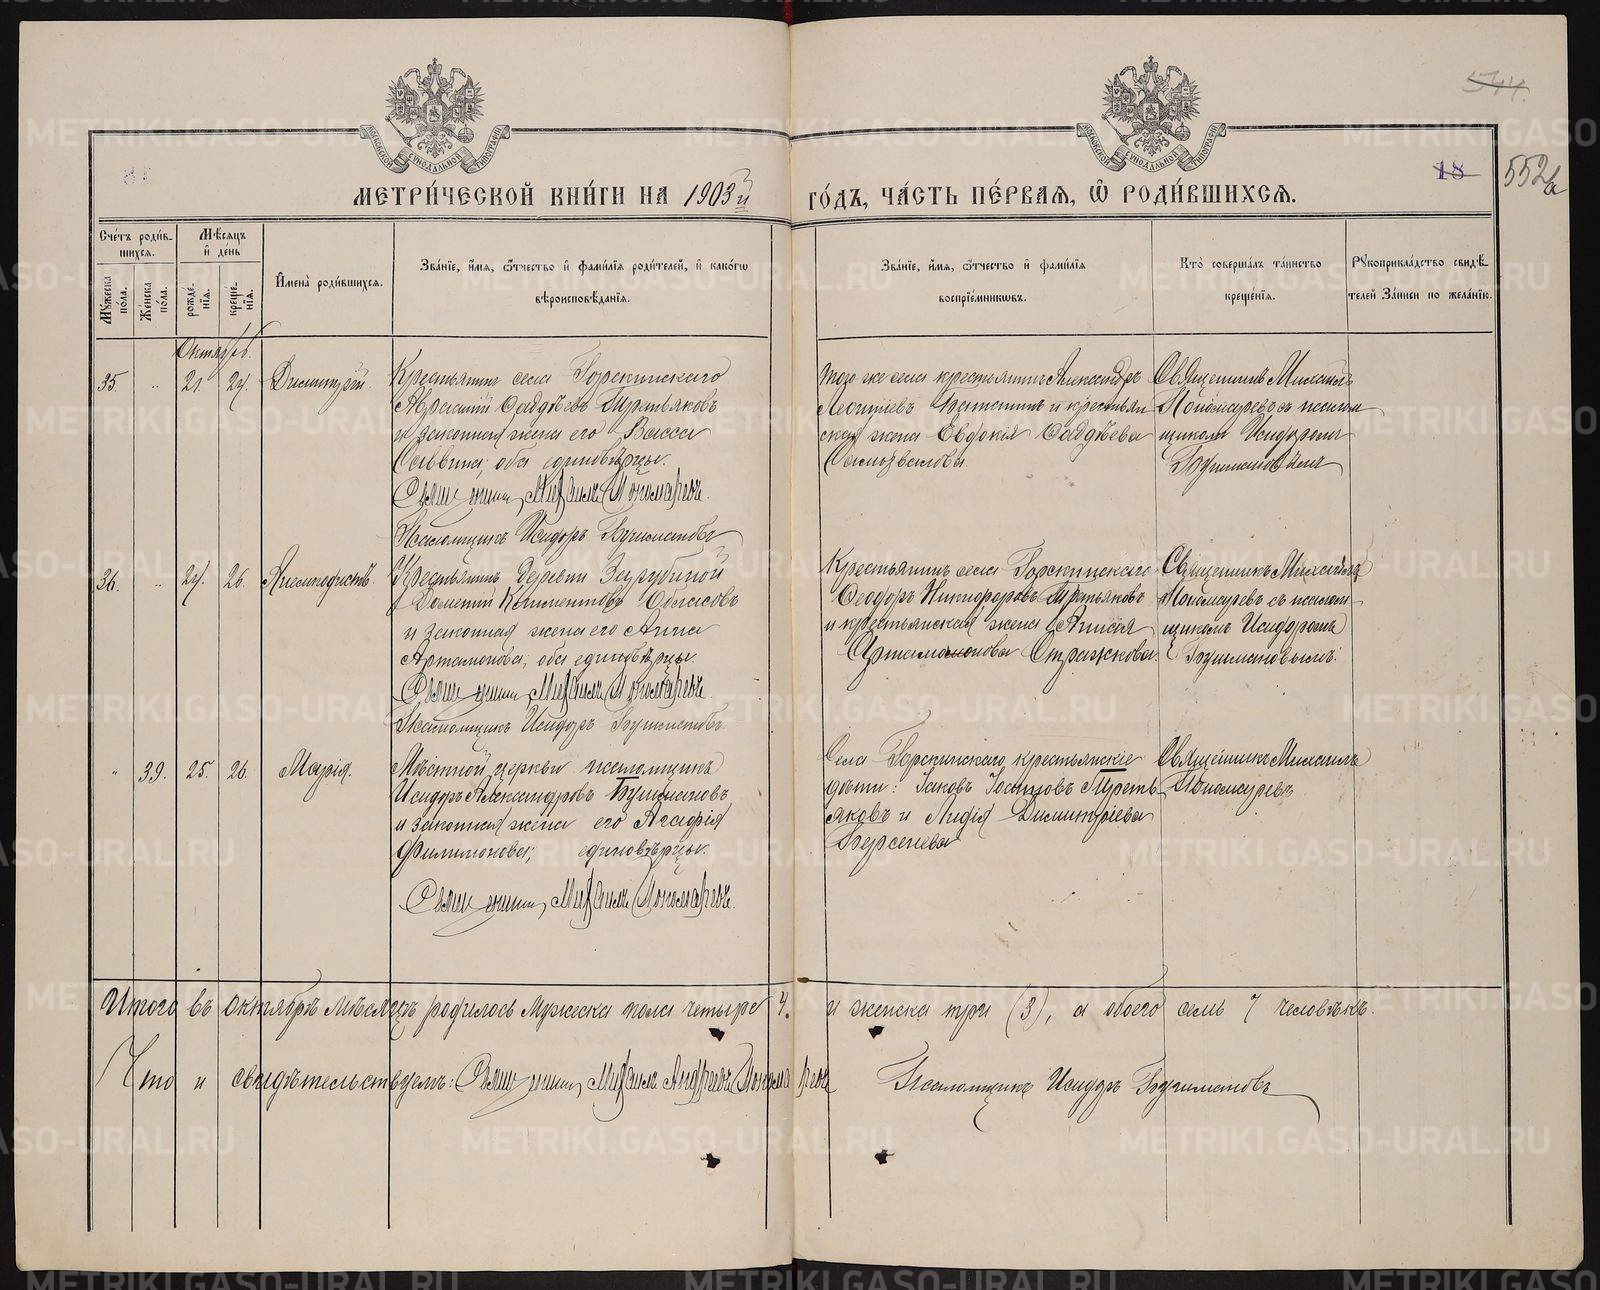 544.
18
552а
МЕТРИ́ЧЕСКОЙ КНИ́ГИ НА 1903й ГО́ДЪ, ЧА́СТЬ ПЕ́РВАЯ, Ѿ РОДИ́ВШИХСЯ.
Сче́тъ роди́в-
шихся.
Му́жеска по́ла.
Же́нска по́ла.
Мѣ́сяцъ и́ де́нь
рожде́нїя.
креще́нїя.
И҆мена̀ роди́вшихся.
Зва́нїе, и҆́мя, ѻ҆́тчество и҆ фами́лїя роди́телей, и҆ како́гѡ
вѣроисповѣ́данїя.
Зва́нїе, и҆́мя, ѻ҆́тчество и҆ фами́лїя
воспрїе́мникѡвъ.
Кто̀ соверша́лъ та́инство
креще́нїя.
Рꙋкоприкла́дство свидѣ́-
телей за́писи по жела́нїю.
Октябрь.
35 " 21 24. Димитрій.
Крестьянинъ села Горскинскаго
Саддѣевъ Третьяковъ
и законная жена его Васса
Саввина; оба единовѣрцы.
Священникъ Михаилъ Пономаревъ.
Псаломщикъ Исидоръ Бушмановъ
того же села крестьянинъ Александръ
Леонтіевъ и крестьян
ская жена Евдокія Саддѣева
Священникъ Михаилъ
Пономаревъ съ псалом
щикомъ Исидоромъ
Бушмановымъ
36. " 24. 26.
Крестьянинъ деревни Зарубиной
Дометій Климентовъ
и законная жена его Анна
Артамонова, оба единовѣрцы.
Священникъ Михаилъ Пономаревъ
Псаломщикъ Исидоръ Бушмановъ
Крестьянинъ села Горскинскаго
Ѳеодоръ Никифоровъ Третьяковъ
и крестьянская жена Анисія
Артамонова Стражкова.
Священникъ Михаилъ
Пономаревъ съ псалом
щикомъ Исидоромъ
Бушмановымъ.
" 39. 25. 26. Марія.
Мѣстной церкви псаломщикъ
Исидоръ Александровъ Бушмановъ
и законная жена его Агафія
Филимонова; единовѣрцы.
Священникъ Михаилъ Пономаревъ.
Села Горскинскаго крестьянскіе
дѣти: Іаковъ Треть
яковъ и Лидія Димитріева
Берсенева
Священникъ Михаилъ
Пономаревъ
Итого въ октябрѣ мѣсяцѣ родилось мужеска пола четыре 4. и женска три (3), а обоего семь 7 человѣкъ.
Что и свидѣтельствуемъ: Священникъ Михаилъ Андреевъ Пономаревъ Псаломщикъ Исидоръ Бушмановъ
METRIKI.GASO-URAL.RU